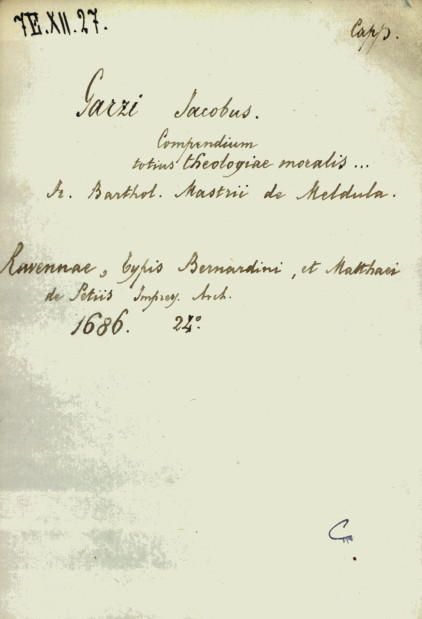 7E.XII.27.
Capp.
Garzi Jacobus.
Compendium
totius theologiae moralis...
Fr. Barthol. Mastrii de Meldula.
Ravennae, Typis Bernardini, et Matthaei
de Petiis Impress. Arch.
1686. 24°.